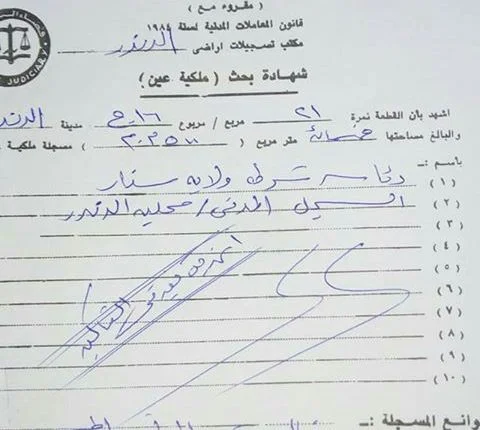 ( مقروء مع )
قانون المعاملات المدنية لسنة ١٩٨٤
مكتب تسجيلات اراضى الدندر
JUDICIARY
شهادة بحث ( ملكية عين )
اشهد بأن القطعة نمرة ٢١ مربع / مربوع ١٦ ح مدينة الدندر
والبالغ مساحتها خمسمائة متر مربع ( ٥٠٠ م.م ) مسجلة ملكية
بأسم :ــ
( ١ ) رئاسة شرطة ولاية سنار
( ٢ ) السجل المدني / محلية الدندر
( ٣ )
( ٤ )
( ٥ )
( ٦ )
( ٧ )
( ٨ )
( ٩ )
( ١٠ )
وانع المسجلة :ــ